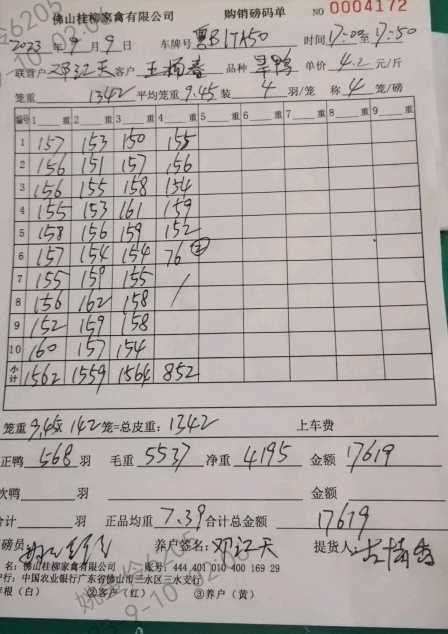 佛山桂柳家禽有限公司 购销磅码单 NO 0004172
2023年9月9日 车牌号 粤B17A50 时间17:00至17:50
联营户 邓江天 客户 王杨春 品种 旱鸭 单价 4.2 元/斤
笼重 1342 平均笼重 9.45 装 4 羽/笼 称 4 笼/磅
编号 1 重 2 重 3 重 4 重 5 重 6 重 7 重 8 重 9 重
1 157 153 150 155
2 156 151 157 156
3 156 155 158 154
4 155 153 161 159
5 158 156 159 152
6 157 154 154 76 ②
7 155 159 155 /
8 156 162 158
9 152 159 158
10 160 157 154
小计 1562 1559 1564 852
笼重 9.45x 142 笼=总皮重: 1342 上车费
正鸭 568 羽 毛重 5537 净重 4195 金额 17619
次鸭 羽 金额
合计 羽 正品均重 7.39 合计总金额 17619
磅员: 养户签名: 邓江天 提货人:
名: 佛山桂柳家禽有限公司 账号: 444 401 010 400 169 29
行: 中国农业银行广东省佛山市三水区三水支行
存根(白) ②客户(红) ③养户(黄)